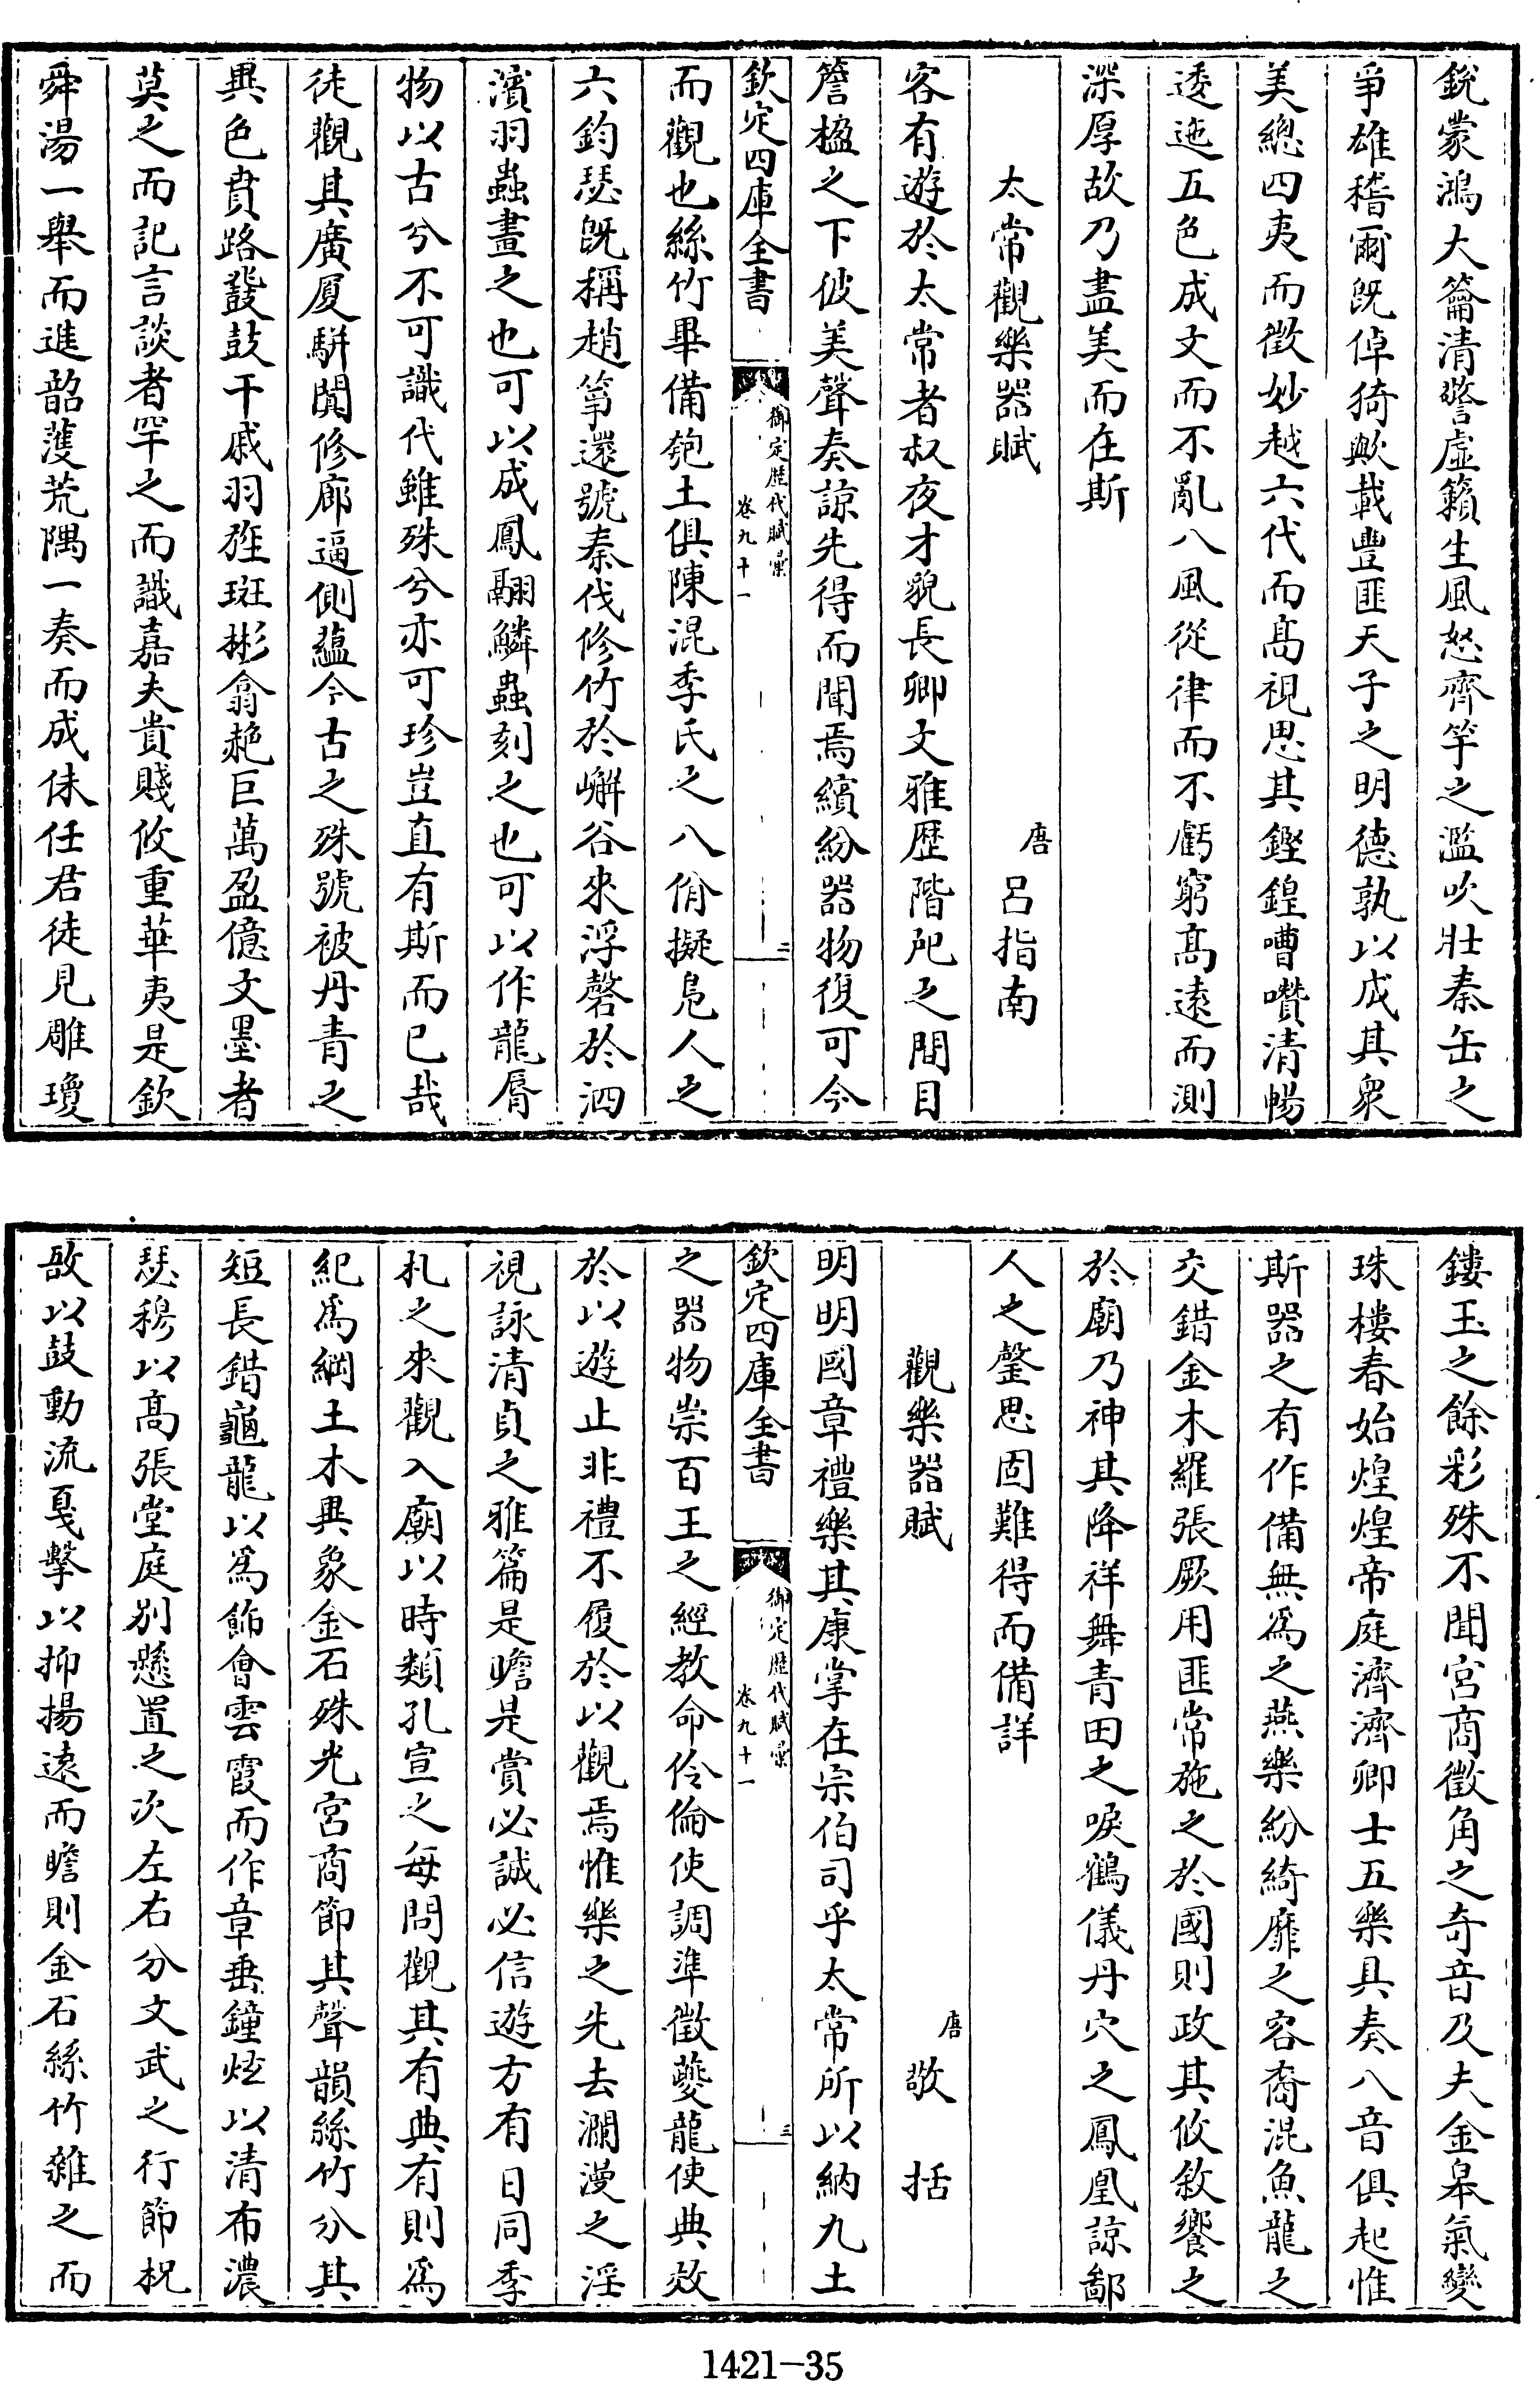 鋭蒙鴻大籥清謷虛籟生風怒齊竽之濫吹壯秦缶之
爭雄稽爾旣倬猗歟載豐匪天子之明德孰以成其衆
美總四夷而徵妙越六代而髙視思其鏗鍠嘈囋清暢
逶迤五色成文而不亂八風從律而不虧窮髙遠而測
深厚故乃盡美而在斯
太常觀樂器賦
唐 呂指南
客有遊於太常者叔夜才貌長卿文雅歴階戺之間目
簷楹之下彼美聲奏諒先得而聞焉繽紛器物復可今
欽定四庫全書
御定歴代賦彙
卷九十一
二
而觀也絲竹畢備匏土俱陳混季氏之八佾擬鳧人之
六鈞瑟旣稱趙箏還號秦伐修竹於嶰谷來浮磬於泗
濱羽蟲畫之也可以成鳳翮鱗蟲刻之也可以作龍脣
物以古兮不可識代雖殊兮亦可珍豈直有斯而已哉
徒觀其廣厦駢闐修廊逼側蘊今古之殊號被丹青之
異色賁路鼗鼓干戚羽旄斑彬翕赩巨萬盈億文墨者
莫之而記言談者罕之而識嘉夫貴賤攸重華夷是欽
舜湯一舉而進韶濩荒隅一奏而成佅任君徒見雕瓊
鏤玉之餘彩殊不聞宮商徵角之奇音及夫金皋氣變
珠樓春始煌煌帝庭濟濟卿士五樂具奏八音俱起惟
斯器之有作備無爲之燕樂紛綺靡之容裔混魚龍之
交錯金木羅張厥用匪常施之於國則政其攸敘饗之
於廟乃神其降祥舞青田之唳鶴儀丹穴之鳳凰諒鄙
人之罄思固難得而備詳
觀樂器賦
唐 敬括
明明國章禮樂其康掌在宗伯司乎太常所以納九土
欽定四庫全書
御定歴代賦彙
卷九十一
三
之器物崇百王之經教命伶倫使調準徵夔龍使典效
於以遊止非禮不履於以觀焉惟樂之先去瀾漫之淫
視詠清貞之雅篇是瞻是賞必誠必信遊方有日同季
札之來觀入廟以時類孔宣之每問觀其有典有則爲
紀爲綱土木異象金石殊光宮商節其聲韻絲竹分其
短長錯龜龍以爲飾會雲霞而作章垂鐘炫以清布濃
瑟穆以髙張堂庭别懸置之次左右分文武之行節柷
敔以鼓動流戛擊以抑揚遠而瞻則金石絲竹雜之而
1421-35